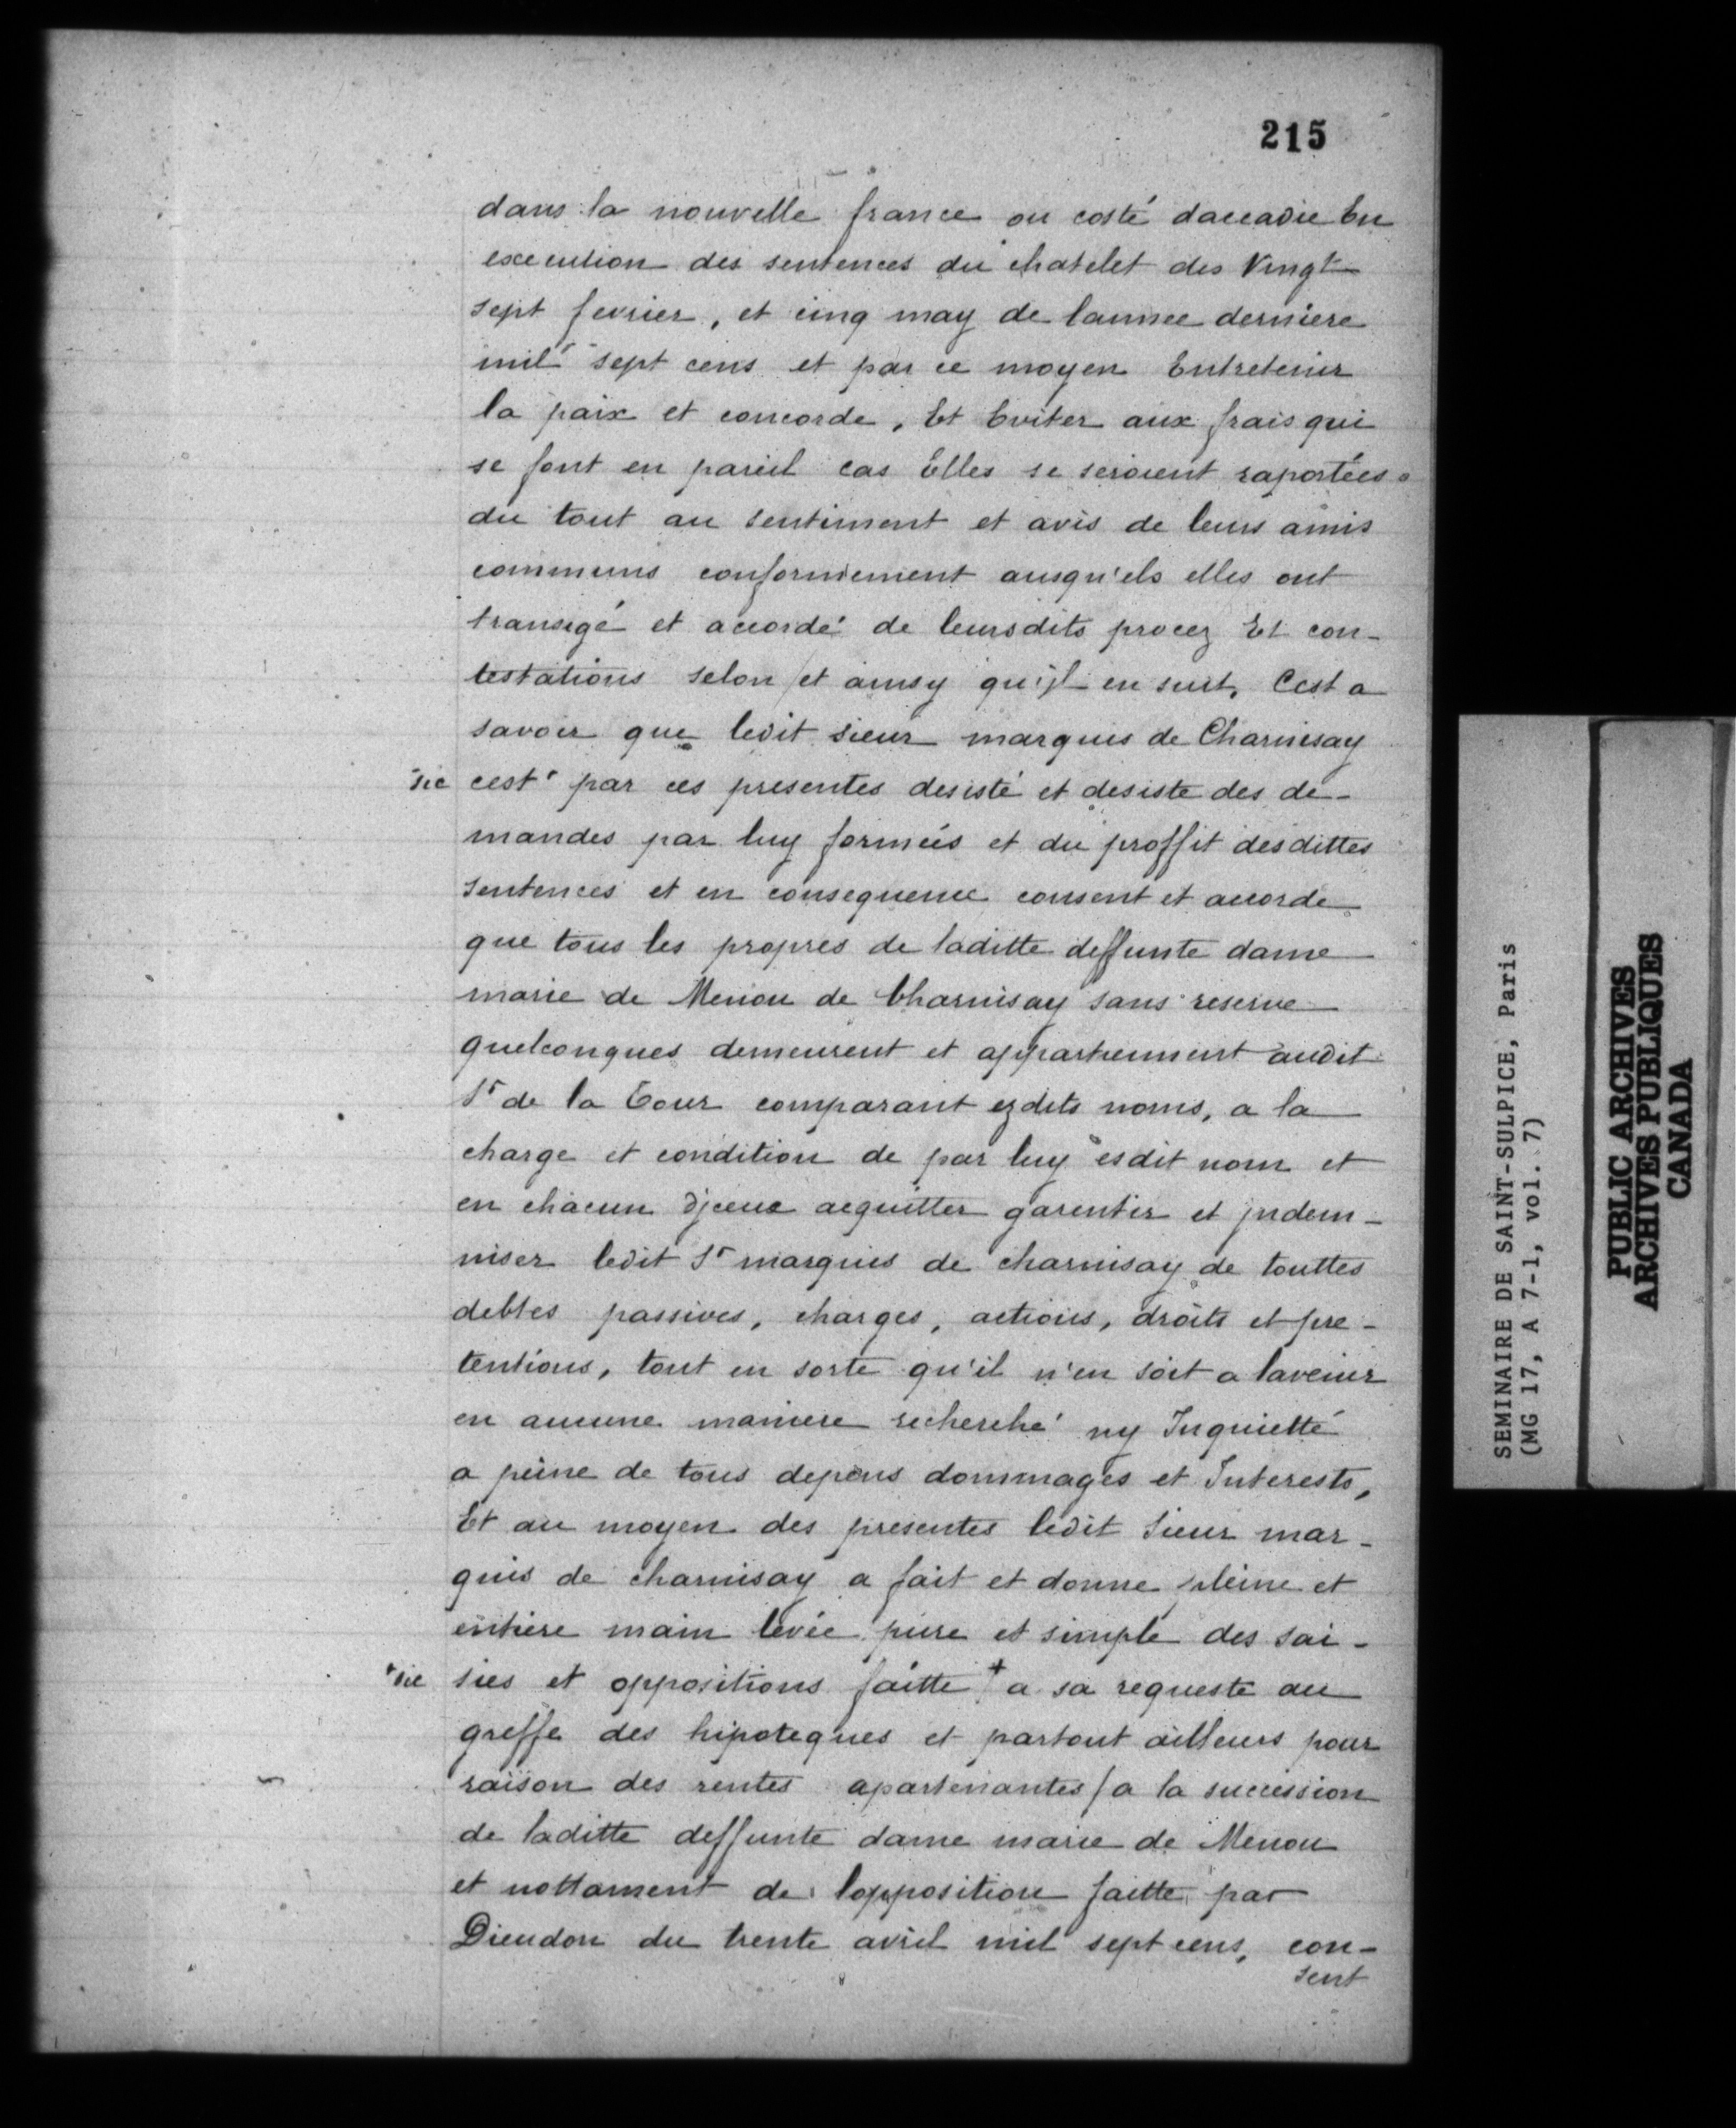 215
dans la nouvelle france ou costé daccadie En
execution des sentences du chatelet des Vingt
sept fevrier, et cinq may de lannee derniere
mil sept cens et par ce moyen Entretenir
la paix et concorde, Et Eviter aux frais qui
se font en pareil cas Elles se seroient raportées
du tout au sentiment et avis de leurs amis
communs conformement ausqu'els elles ont
transigé et accordé de leursdits procez Et con-
testations selon et ainsy qu'jl en suit, Cest a
savoir que ledit sieur marquis de Charnisay
sic cest par ces presentes desisté et desiste des de-
mandes par luy formées et du proffit desdittes
sentences et en consequence consent et accorde
que tous les propres de laditte deffunte dame
marie de Menou de Charnisay sans reserve
quelconques demeurent et appartiennent audit
Sr de la Tour comparant ezdits noms, a la
charge et condition de par luy esdit nom et
en chacun djceux acquitter garentir et jndem-
niser ledit Sr marquis de charnisay de touttes
debtes passives, charges, actions, droits et pre-
tentions, tout en sorte qu'il n'en soit a lavenir
en aucune maniere recherché ny Inquietté
a peine de tous depens dommages et Interests,
Et au moyen des presentes ledit Sieur mar-
quis de charnisay a fait et donne pleine et
entiere main levée pure et simple des sai-
+sic sies et oppositions faitte + a sa requeste au
greffe des hipoteques et partout ailleurs pour
raison des rentes apartenantes a la succession
de laditte deffunte dame marie de Menou
et nottament de lopposition faitte par
Dieudon du trente avril mil sept cens, con-
sent
SEMINAIRE DE SAINT-SULPICE, Paris
(MG 17, A 7-1, vol. 7)
PUBLIC ARCHIVES
ARCHIVES PUBLIQUES
CANADA